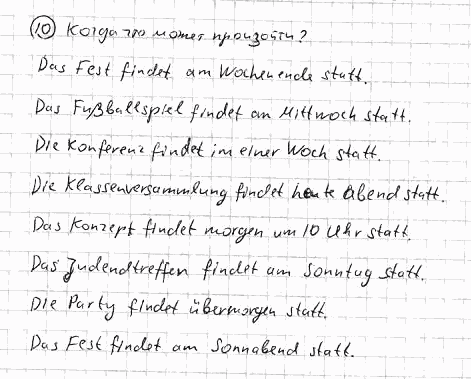 10 Когда это может произойти?
Das Fest findet am Wochenende statt.
Das Fußballspiel findet am Mittwoch statt.
Die Konferenz findet im einer Woch statt.
Die Klassenversammlung findet heute Abend statt.
Das Konzept findet morgen um 10 Uhr statt.
Das Judendtreffen findet am Sonntag statt.
Die Party findet übermorgen statt.
Das Fest findet am Sonnabend statt.